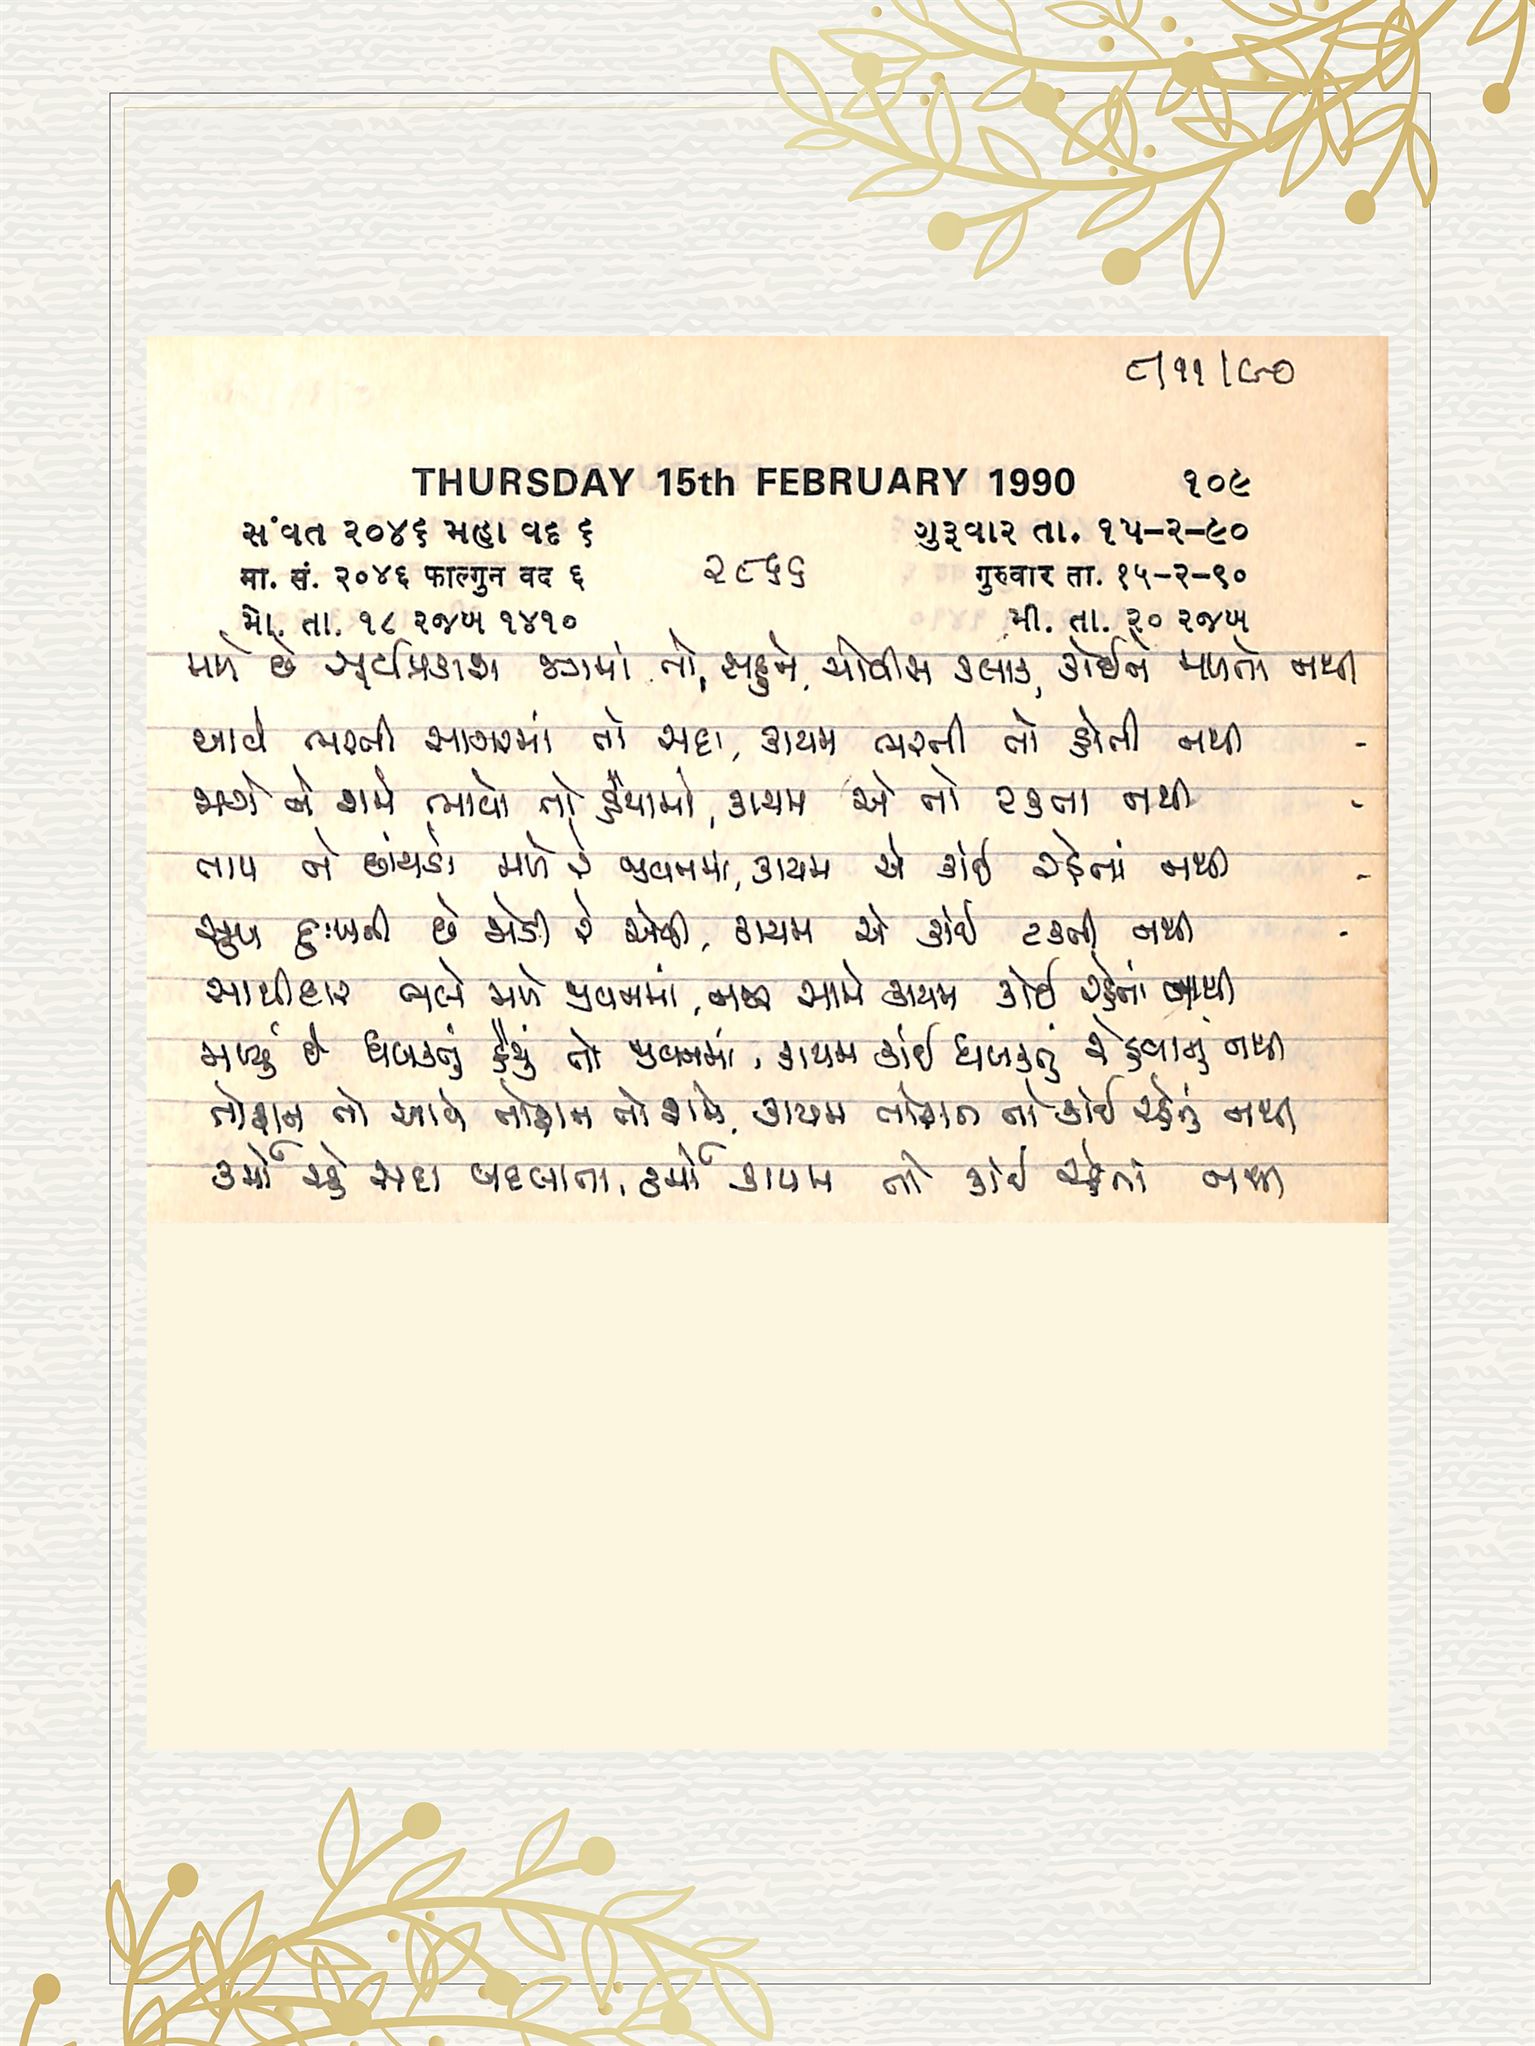 ૮/૧૧/૯૦
THURSDAY 15th FEBRUARY 1990 ૧૦૯
સંવત ૨૦૪૬ મહા વદ ૬ ગુરૂવાર તા. ૧૫-૨-૯૦
मा. सं. २०४६ फाल्गुन वद ६ ૨૮૫૬ गुरुवार ता. १५-२-९०
મો. તા. ૧૮ રજબ ૧૪૧૦ મી. તા. ૨૦ રજબ
મળે છે સૂર્યપ્રકાશ જગમાં તો, સહુને, ચોવીસ કલાક, કોઈને મળતો નથી
આવે ભરતી સાગરમાં તો સદા, કાયમ ભરતી તો હોતી નથી -
જાગે ને શમે ભાવો તો હૈયામાં, કાયમ એ તો ટકતા નથી -
તાપ ને છાંયડો મળે રે જીવનમાં, કાયમ એ કાંઈ રહેતાં નથી -
સુખ દુઃખની છે જોડી રે એવી, કાયમ એ કાંઈ ટકતી નથી -
સાથીદાર ભલે મળે જીવનમાં, નજર સામે કાયમ કોઈ રહેતાં નથી
મળ્યું છે ધબકતું હૈયું તો જીવનમાં, કાયમ કાંઈ ધબકતું રહેવાનું નથી
તોફાન તો આવે તોફાન તો શમે, કાયમ તોફાન તો કાંઈ રહેતું નથી
કર્મો રહે સદા બદલાતા, કર્મો કાયમ તો કાંઈ રહેતાં નથી